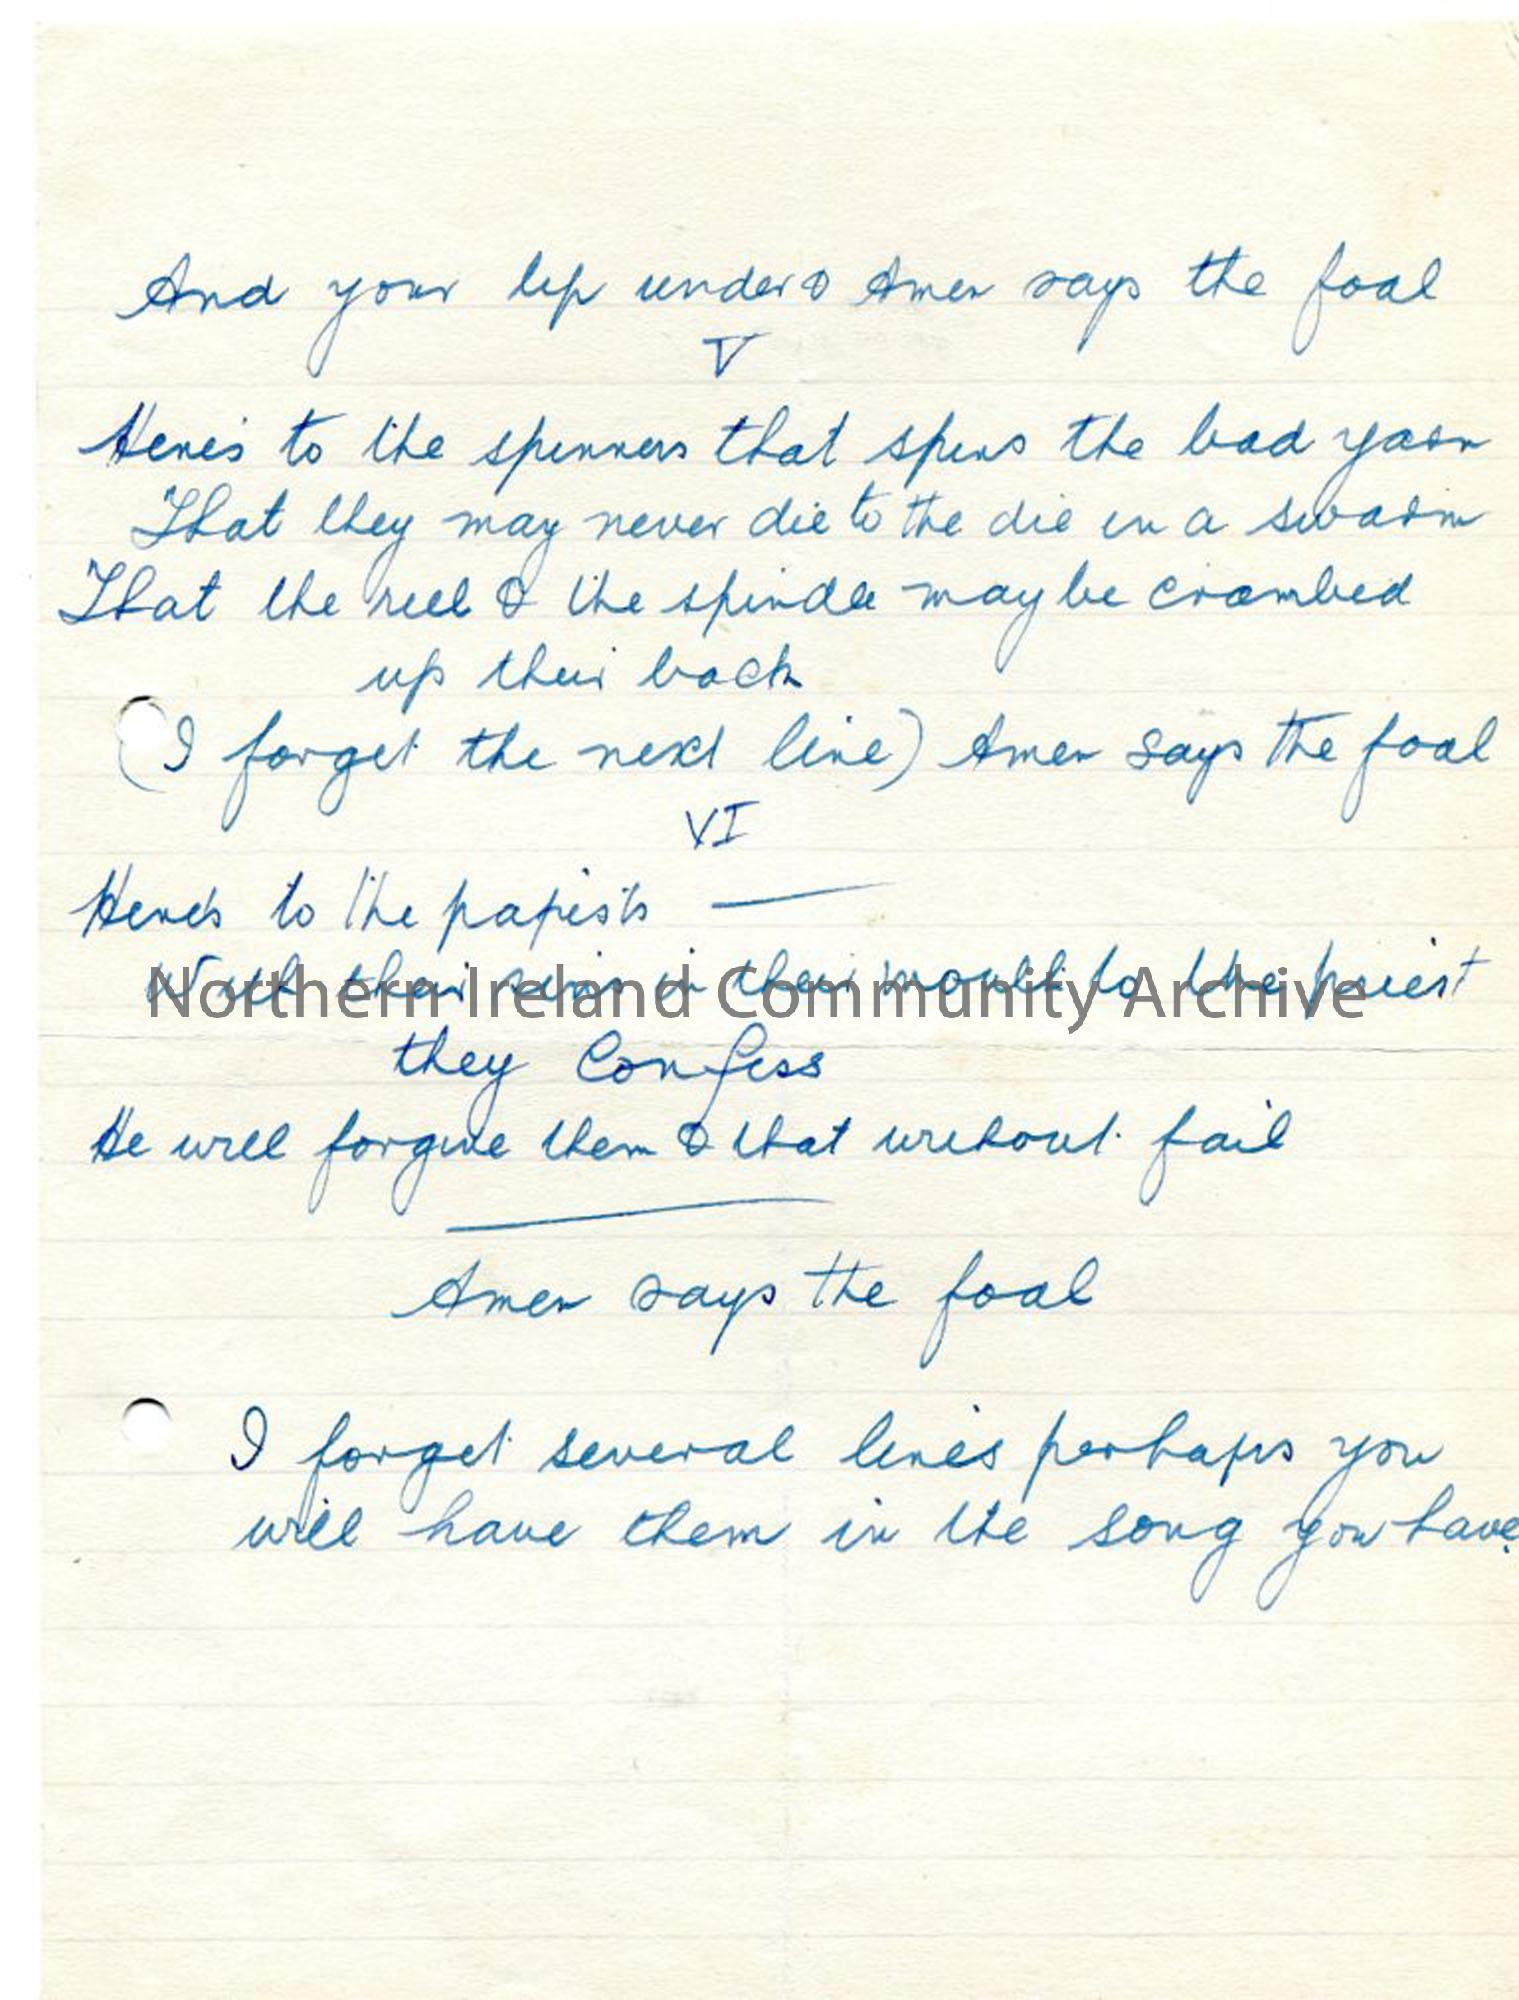 And your lip under & Amen says the foal
V
Here's to the spinners that spins the bad yarn
That they may never die to the die in a swarm
That the reel & the spindle may be crambed
up their back
(I forget the next line) Amen says the foal
VI
Here's to the papists —
With their sins in their mouth to the priest
Northern Ireland Community Archive
they Confess
He will forgive them & that without fail
Amen says the foal
I forget several lines perhaps you
will have them in the song you have.